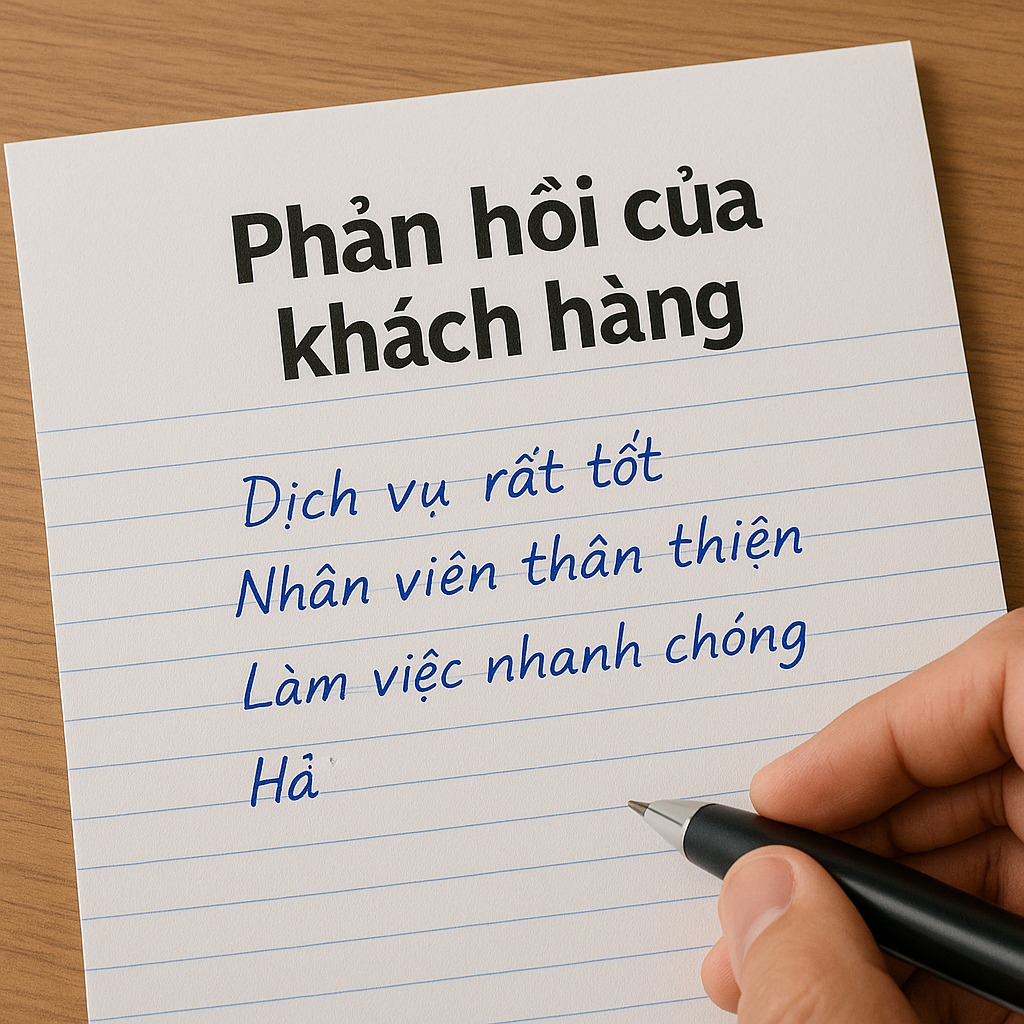 Phản hồi của
khách hàng
Dịch vụ rất tốt
Nhân viên thân thiện
Làm việc nhanh chóng
Hả